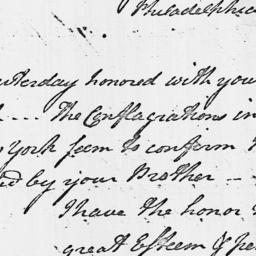 Philadelphia
esterday honored with you
.... The Conflagrations in
York seem to confirm
by your Brother --
I have the honor
great Esteem &